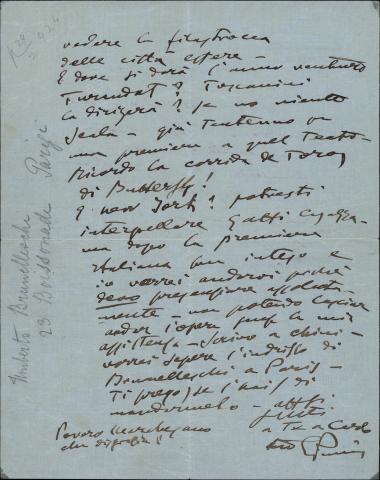 vedere la filastrocca
delle città estere -
E dove si darà l'anno venturo
Turandot? Toscanini
la dirigerà? Se no niente
Scala - già tentenno per
una première a quel Teatro
Ricordo la corrida de Toros
di Butterfly!
E New York? potresti
interpellare Gatti Casazza -
ma dopo la première
italiana ben inteso e
io vorrei andarvi perchè
devo presenziare assoluta
mente - non potendo lasciar
andar l'opera senza la mia
assistenza - Scrivo a Chini -
vorrei sapere l'indirizzo di
Brunelleschi a Paris -
Ti prego, se l'hai, di
mandarmelo - affti
saluti
a Te a Carlo
tuo GPuccini
Povero Marchesano
che disgrazia!
Umberto Brunelleschi
23 Boissonade Parigi